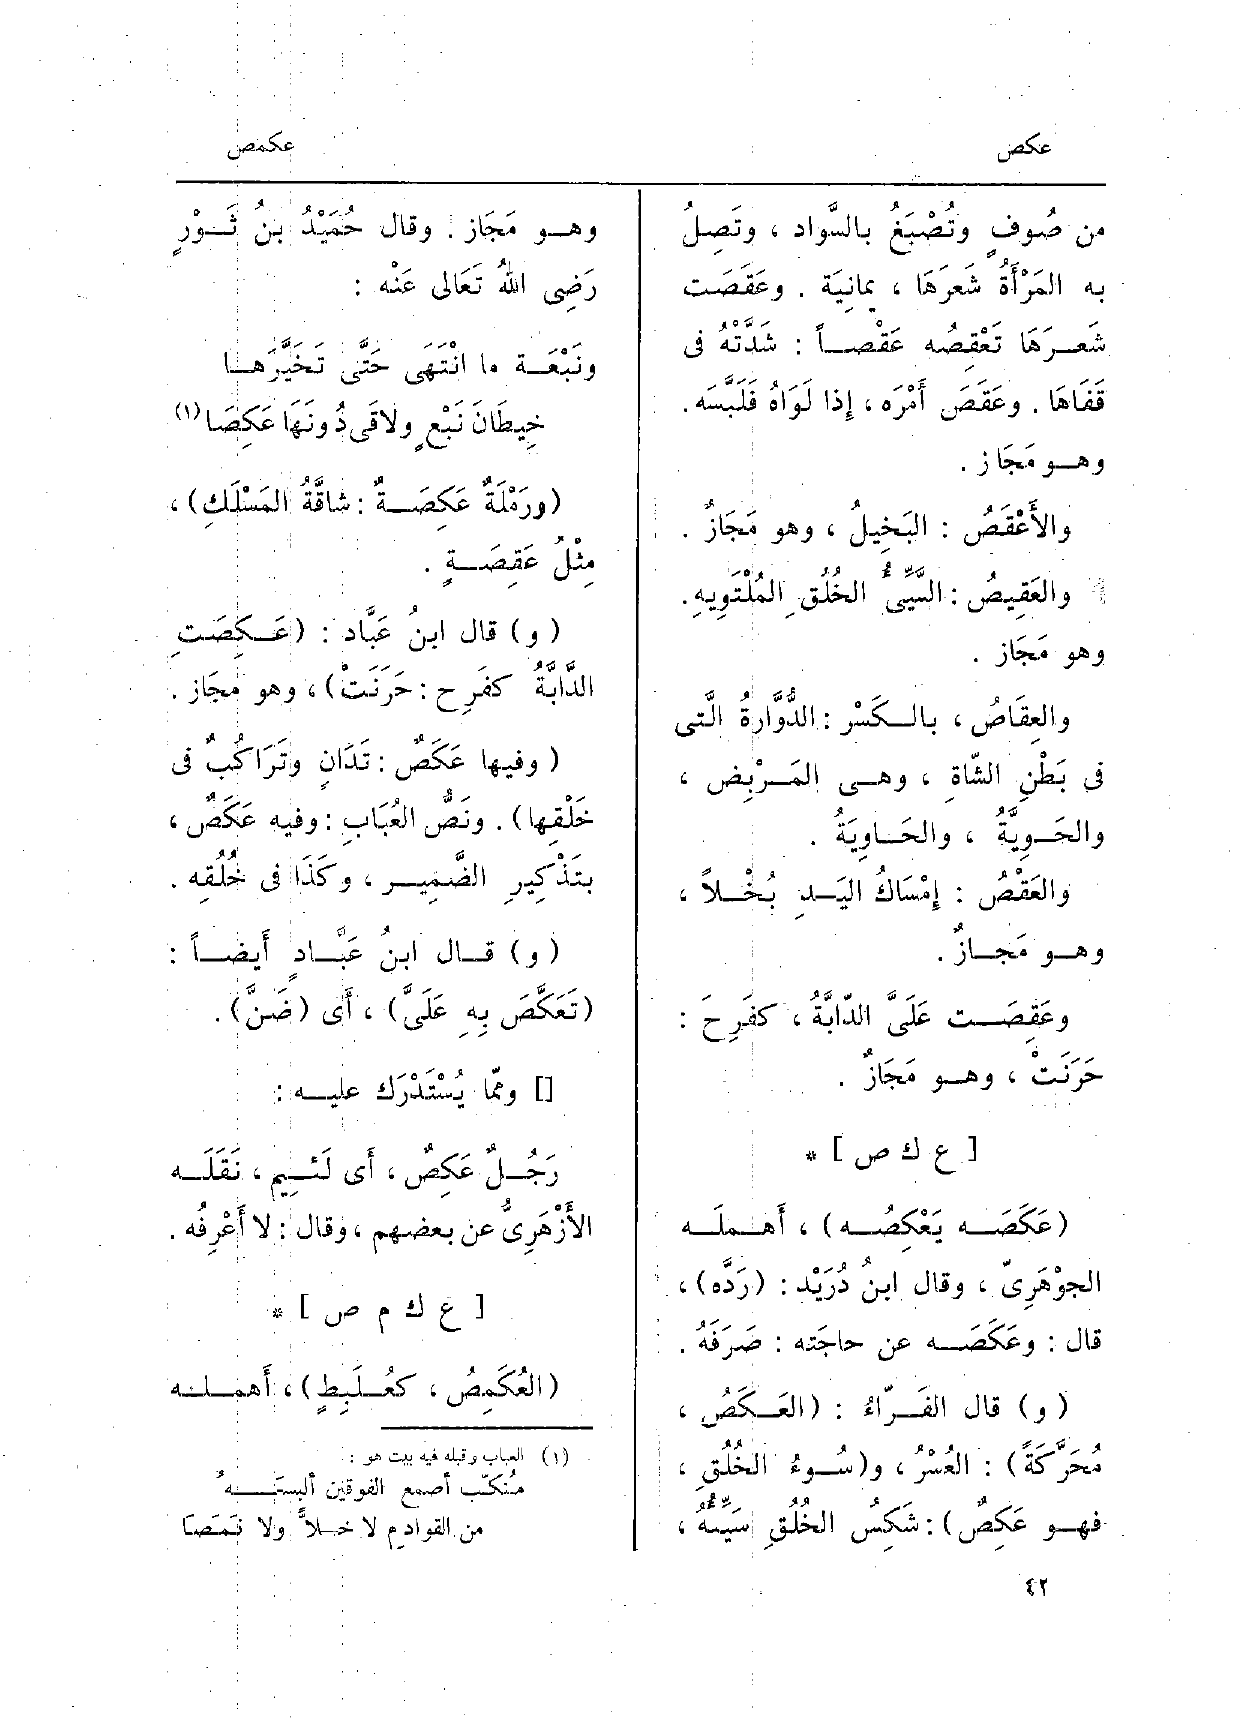 عكص
عكمص
من صُوفٍ وتُصْبَغُ بالسَّواد ، وتَصِلُ
به المَرْأَةُ شَعرَهَا ، يمانِيَة . وعَقَصَت
شَعـرَهَا تَعْقِصُه عَقْصـاً : شَدَّتْهُ فى
قَفَاهَا . وعَقَصَ أَمْرَه ، إذا لَوَاهُ فَلَبَّسَه.
وهـو مَجَاز .
والأَعْقَصُ : البَخِيلُ ، وهو مَجَازٌ .
والعَقِيصُ : السَّيِّىُّ الخُلُقِ المُلْتَوِيهِ.
وهو مَجَاز .
والعِقَاصُ ، بالـكَسْر : الدُّوَّارَةُ الَّتى
فى بَطْنِ الشّاةِ ، وهـى المَـرْبِض ،
والحَـوِيَّةُ ، والحَـاوِيَةُ .
والعَقْصُ : إِمْسَاكُ اليَـدِ بُخْـلاً ،
وهـو مَجـازٌ .
وعَقِصَـت عَلَىَّ الدّابَّةُ ، كفَرِحَ :
حَرَنَتْ ، وهـو مَجَازٌ .
[ ع ك ص ] *
(عَكَصَـه يَعْكِصُـه) ، أَهـملَـه
الجوْهَرِىّ ، وقال ابنُ دُرَيْد : (رَدَّه) ،
قال : وعَكَصَـه عن حاجَتِه : صَرَفَهُ .
( و) قال الفَـرّاءُ : (العَـكَصُ ،
مُحَرَّكَةً) : العُسْرُ ، و(سُـوءُ الخُلُقِ ،
فهـو عَكِصٌ) : شَكِسُ الخُلُقِ سَيِّئُهُ ،
وهـو مَجَاز . وقال حُمَيْدُ بنُ ثَـوْرٍ
رَضِى اللهُ تَعَالى عَنْه :
ونَبْعَـة ما انْتَهى حَتَّى تَخَيَّرَهـا
خِيطَانَ نَبْعٍ ولاقَى دُونَهَا عَكِصَا (١)
(ورَمْلَةٌ عَكِصَـةٌ : شاقَّةُ المَسْلَكِ) ،
مِثْلُ عَقِصَـةٍ .
( و) قال ابنُ عَبَّاد : (عَـكِصَتِ
الدَّابَّةُ كفَرِح : حَرَنَتْ) ، وهو مَجَاز .
( وفيها عَكَصٌ : تَدَانٍ وتَرَاكُبٌ فى
خَلْقِها) . ونَصُّ العُبَابِ : وفيه عَكَصٌ ،
بتَذْكِيرِ الضَّمِيـر ، وكَذَا فى خُلُقِه .
( و) قـال ابنُ عَبَّـادٍ أَيضـاً :
(تَعَكَّصَ بِهِ عَلَىَّ) ، أَى (ضَنَّ).
[] وممّا يُسْتَدْرَك عليـه :
رَجُـلٌ عَكِصٌ ، أَى لَئِـيم ، نَقَلَـه
الأَزْهَرِىُّ عن بعضهم ، وقال : لا أَعْرِفُه .
[ ع ك م ص ] *
(العُكَمِصُ ، كعُـلَبِطٍ) ، أَهمـلـه
(١) العباب وقبله فيه بيت هو :
مُنكّبٌ أصمع الفوقين ألبسَـهُ
من القوادم لا خـلاًّ ولا نَمَصَا
٤٢